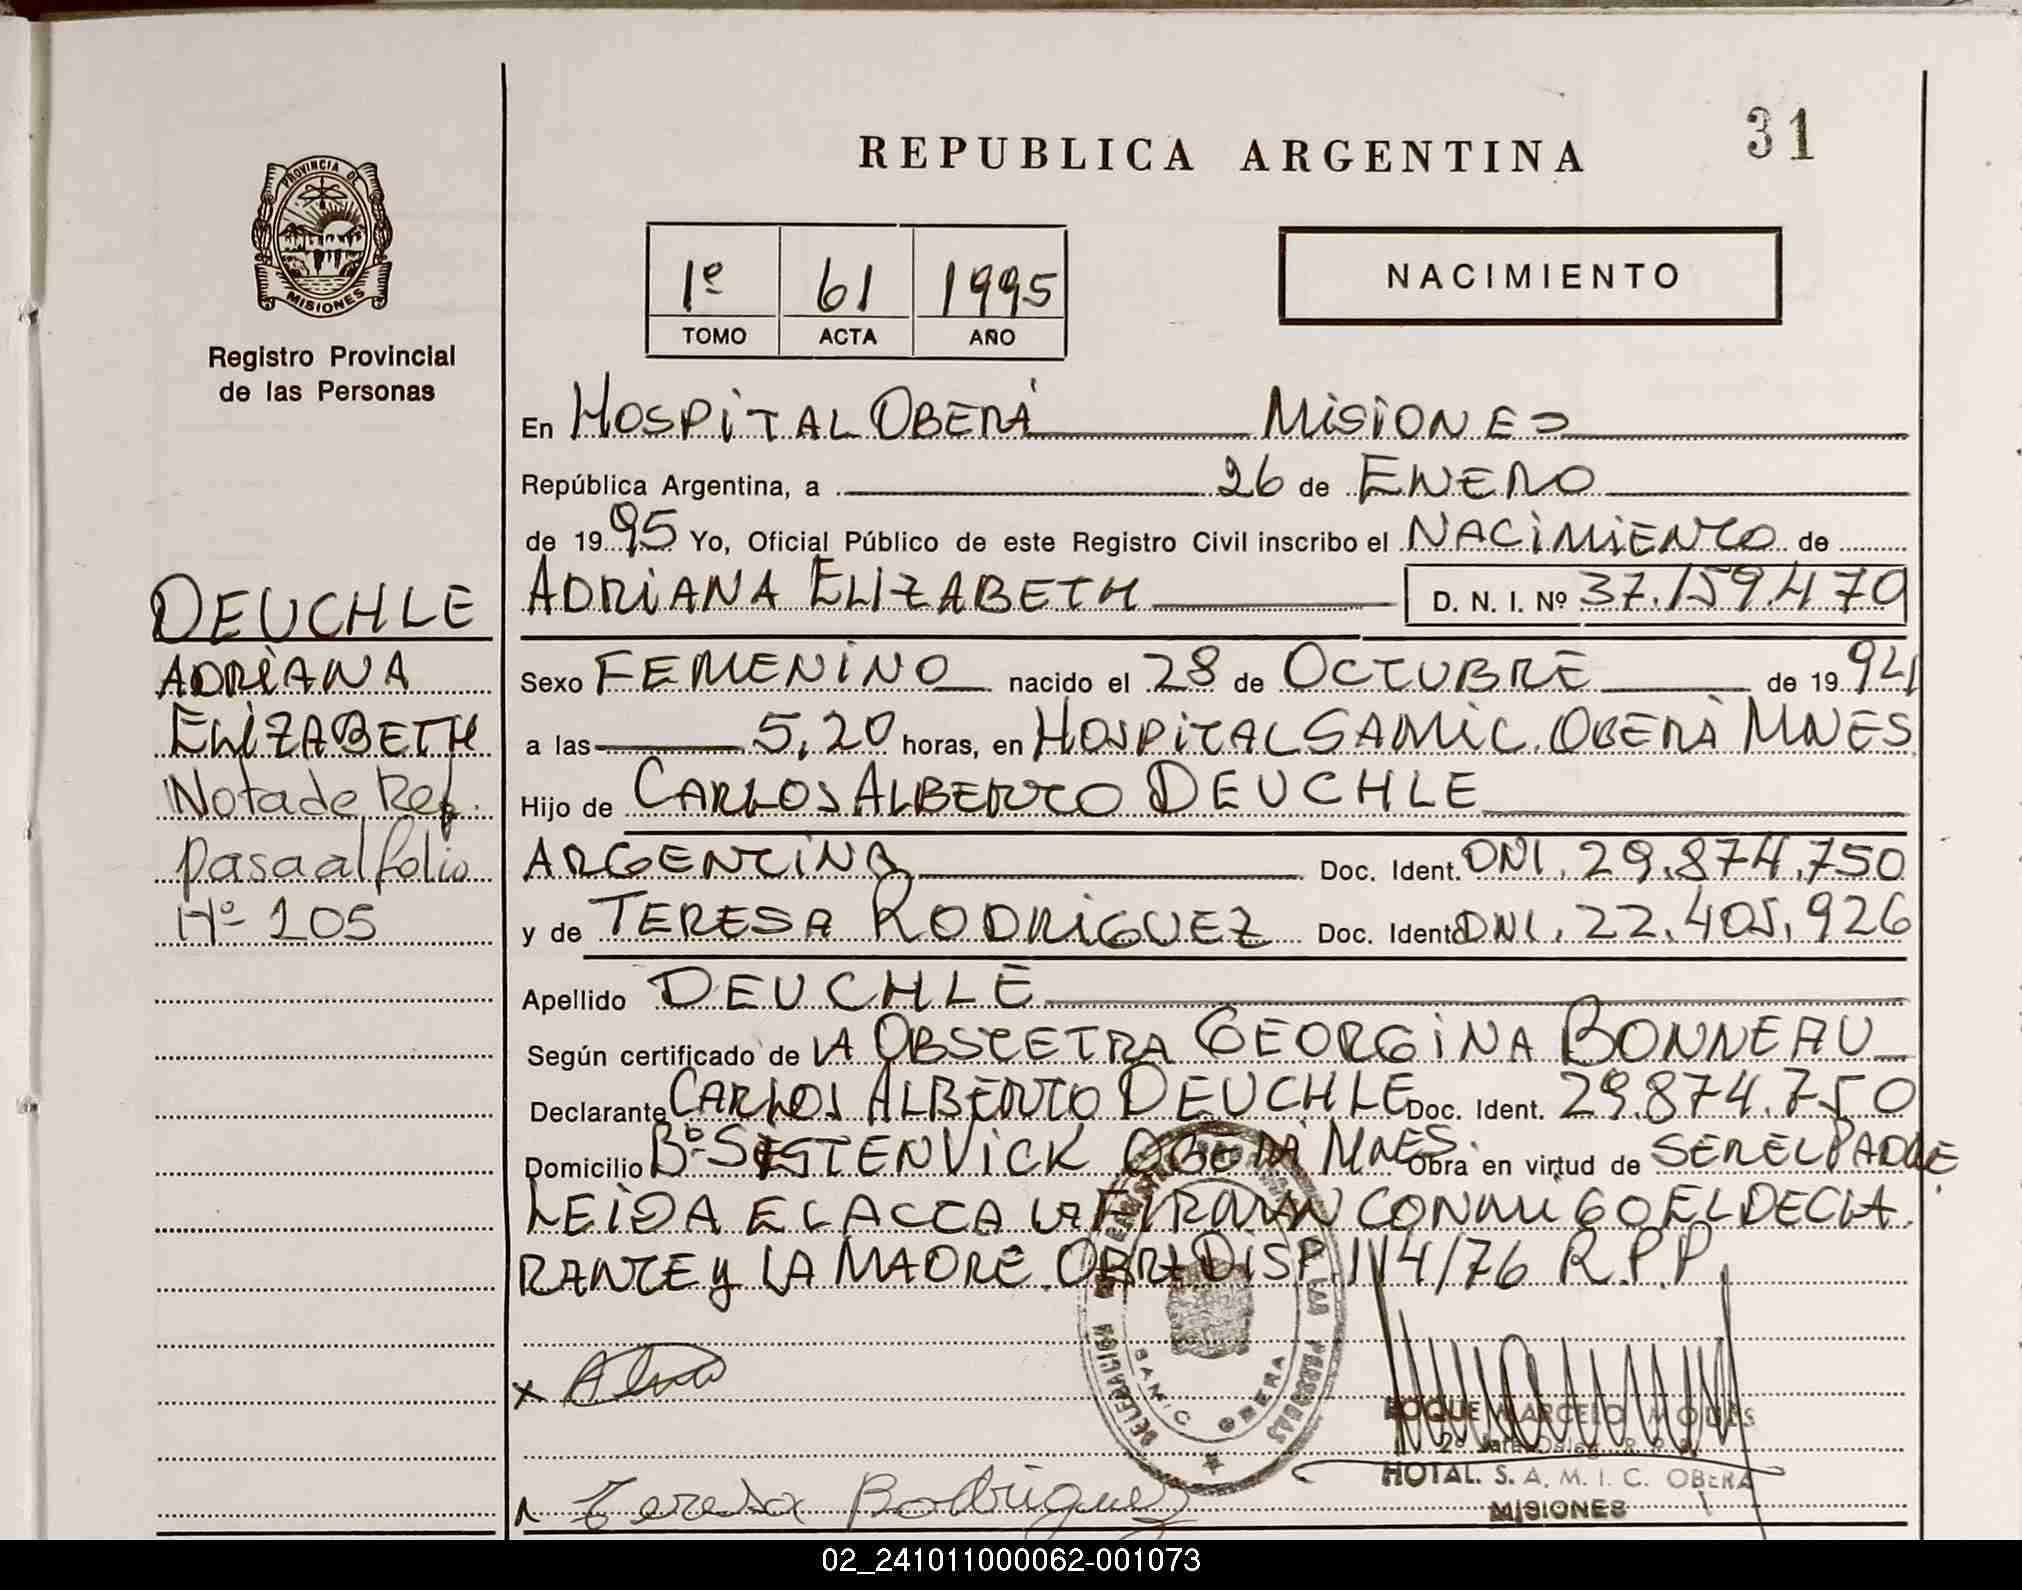 REPUBLICA ARGENTINA
31
PROVINCIA DE
MISIONES
Registro Provincial
de las Personas
1º 61 1995
TOMO ACTA AÑO
NACIMIENTO
En HOSPITAL OBERÁ MISIONES
República Argentina, a 26 de ENERO
de 1995 Yo, Oficial Público de este Registro Civil inscribo el NACIMIENTO de
ADRIANA ELIZABETH D. N. I. Nº 37.159.470
DEUCHLE
ADRIANA
ELIZABETH
Nota de Ref.
pasa al folio
Nº 105
Sexo FEMENINO nacido el 28 de OCTUBRE de 1994
a las 5,20 horas, en HOSPITAL SAMIC. OBERÁ MNES
Hijo de CARLOS ALBERTO DEUCHLE
ARGENTINA Doc. Ident. DNI. 29.874.750
y de TERESA RODRIGUEZ Doc. Ident. DNI. 22.405.926
Apellido DEUCHLE
Según certificado de LA OBSTETRA GEORGINA BONNEAU
Declarante CARLOS ALBERTO DEUCHLE Doc. Ident. 29.874.750
Domicilio Bº SISTENVICK OBERÁ MNES. Obra en virtud de SER EL PADRE.
LEIDA EL ACTA LA FIRMAN CONMIGO EL DECLA
RANTE y LA MADRE. OBRA DISP. 114/76 R.P.P.
DELEGACION
LAS PERSONAS
SAMIC OBERA
ROQUE MARCELO
HOTAL. S. A. M. I. C. OBERA
MISIONES
Teresa Rodriguez
02_241011000062-001073